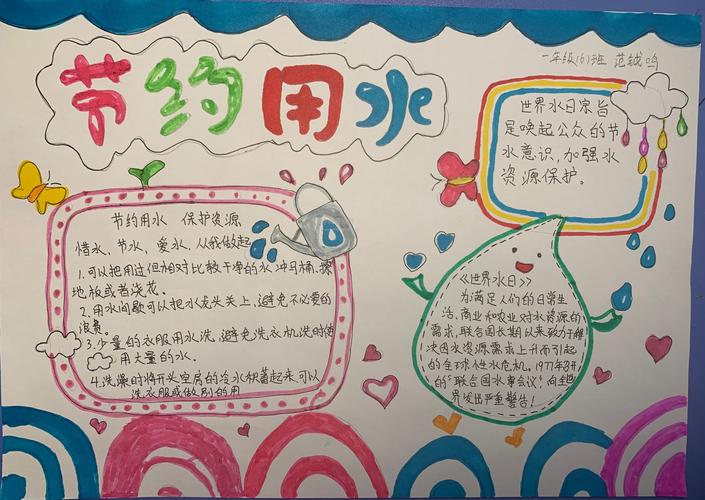 节约用水
一年级(6)班 范钺鸣
世界水日宗旨
是唤起公众的节
水意识,加强水
资源保护。
节约用水 保护资源
惜水、节水、爱水、从我做起
1.可以把用过但相对比较干净的水冲马桶、擦
地板或者浇花。
2.用水间歇可以把水龙头关上,避免不必要的
浪费。
3.少量的衣服用水洗,避免洗衣机洗时使
用大量的水。
4.洗澡时将开头空房的冷水积蓄起来,可以
洗衣服或做别的用
《世界水日》
为满足人们的日常生
活、商业和农业对水资源的
需求,联合国长期以来致力于解
决因水资源需求上升而引起
的全球性水危机。1977年召开
的“联合国水事会议”向全世
界发出严重警告!